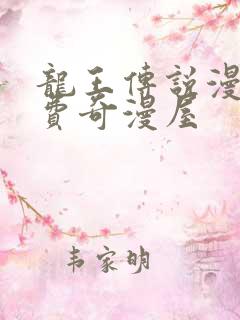 龍王傳說漫
費奇漫屋
韦家明